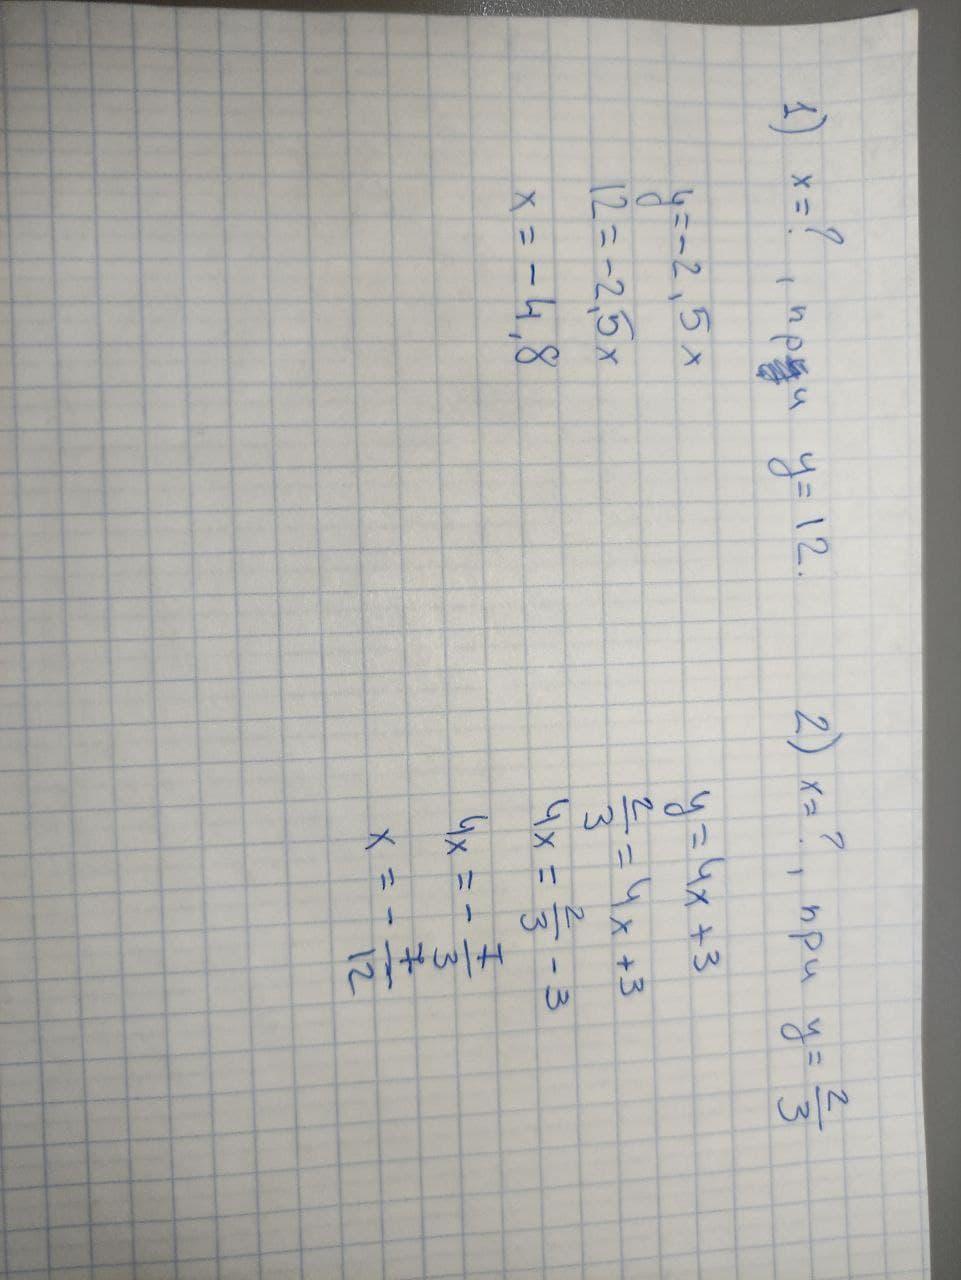 1) x=?, при y=12.
y=-2,5x
12=-2,5x
x=-4,8
2) x=?, при y=2/3
y=4x+3
2/3=4x+3
4x=2/3-3
4x=-7/3
x=-7/12